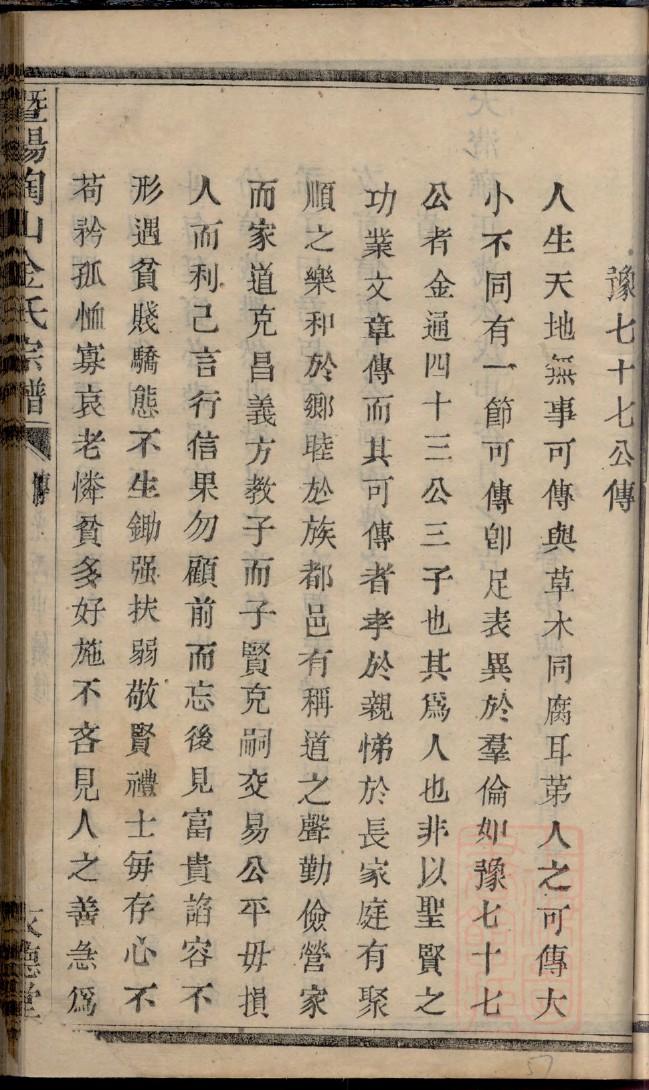 豫七十七公傳
人生天地無事可傳與草木同腐耳苐人之可傳大
小不同有一節可傳卽足表異於羣倫如豫七十七
公者金通四十三公三子也其爲人也非以聖賢之
功業文章傳而其可傳者孝於親悌於長家庭有聚
順之樂和於鄉睦於族都邑有稱道之聲勤儉營家
而家道克昌義方教子而子賢克嗣交易公平毋損
人而利己言行信果勿顧前而忘後見富貴謟容不
形遇貧賤驕態不生鋤强扶弱敬賢禮士每存心不
苟矜孤恤寡哀老憐貧多好施不吝見人之善急爲
暨陽陶山金氏宗譜
傳
文德堂